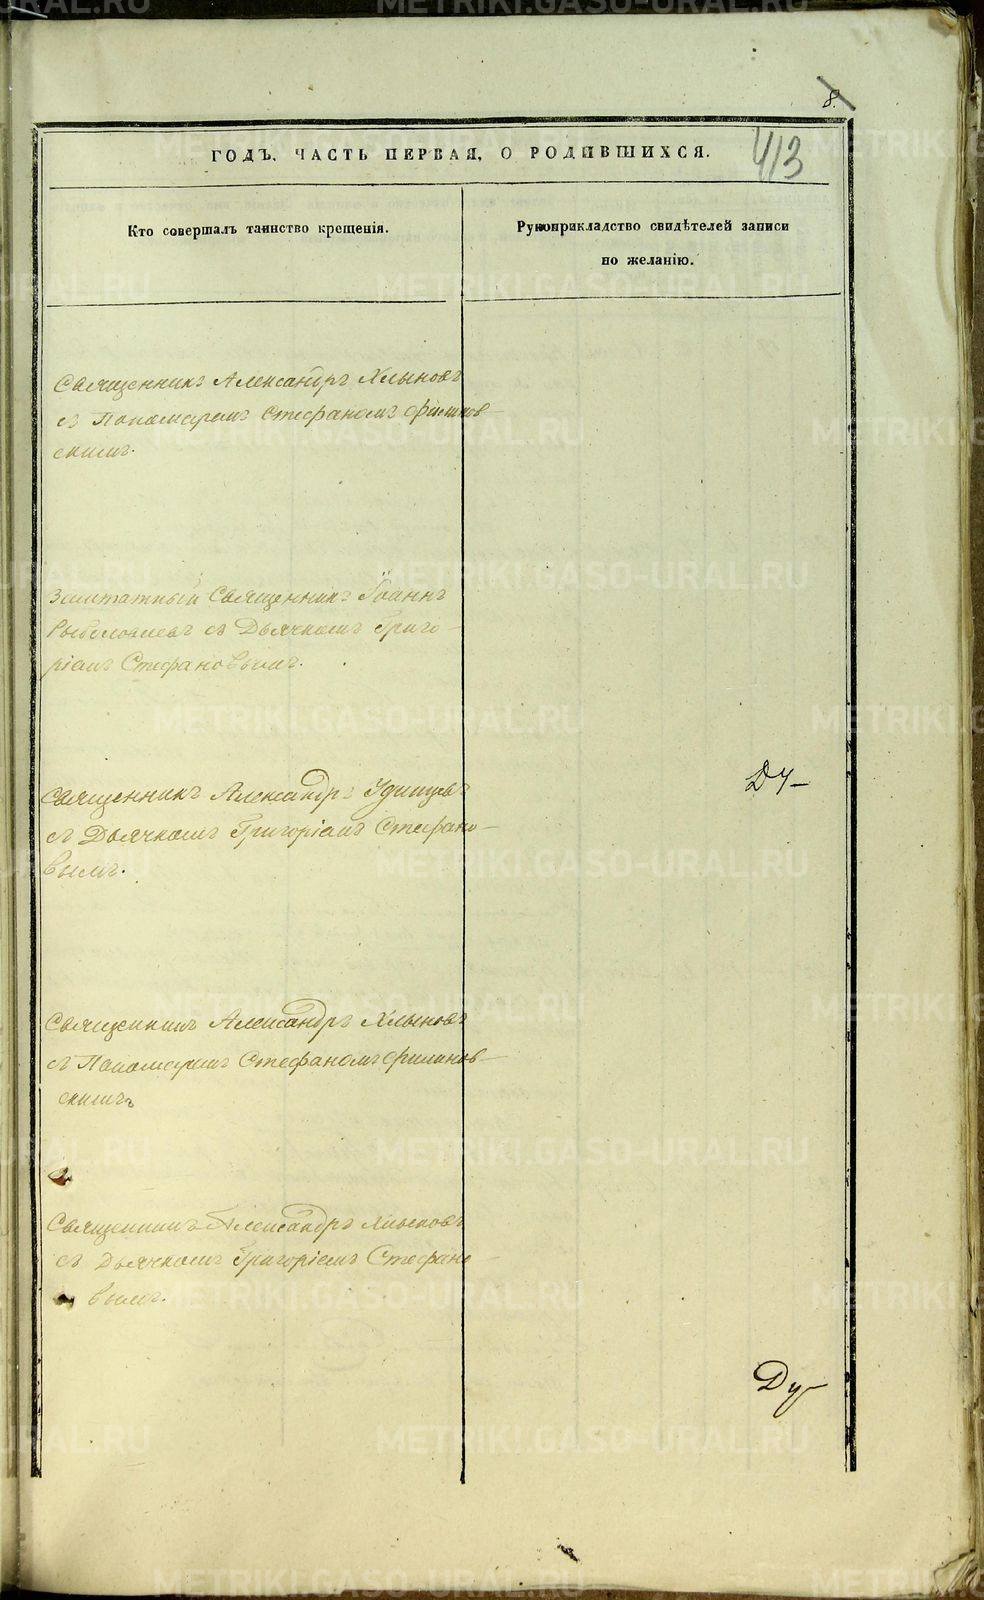 8.
413
ГОДЪ, ЧАСТЬ ПЕРВАЯ, О РОДИВШИХСЯ.
Кто совершалъ таинство крещенія.
Рукоприкладство свидѣтелей записи
по желанію.
Священникъ Александръ Хлыновъ
съ Пономаремъ Стефаномъ Филинов-
скимъ.
Заштатный Священникъ Іоаннъ
Рыболовлевъ съ Дьячкомъ Григо-
ріемъ Стефановымъ.
Священникъ Александръ Удинцевъ
съ Дьячкомъ Григоріемъ Стефано-
вымъ.
Ду-
Священникъ Александръ Хлыновъ
съ Пономаремъ Стефаномъ Филинов-
скимъ
Священникъ Александръ Хлыновъ
съ Дьячкомъ Григоріемъ Стефано
вымъ.
Ду-
METRIKI.GASO-URAL.RU